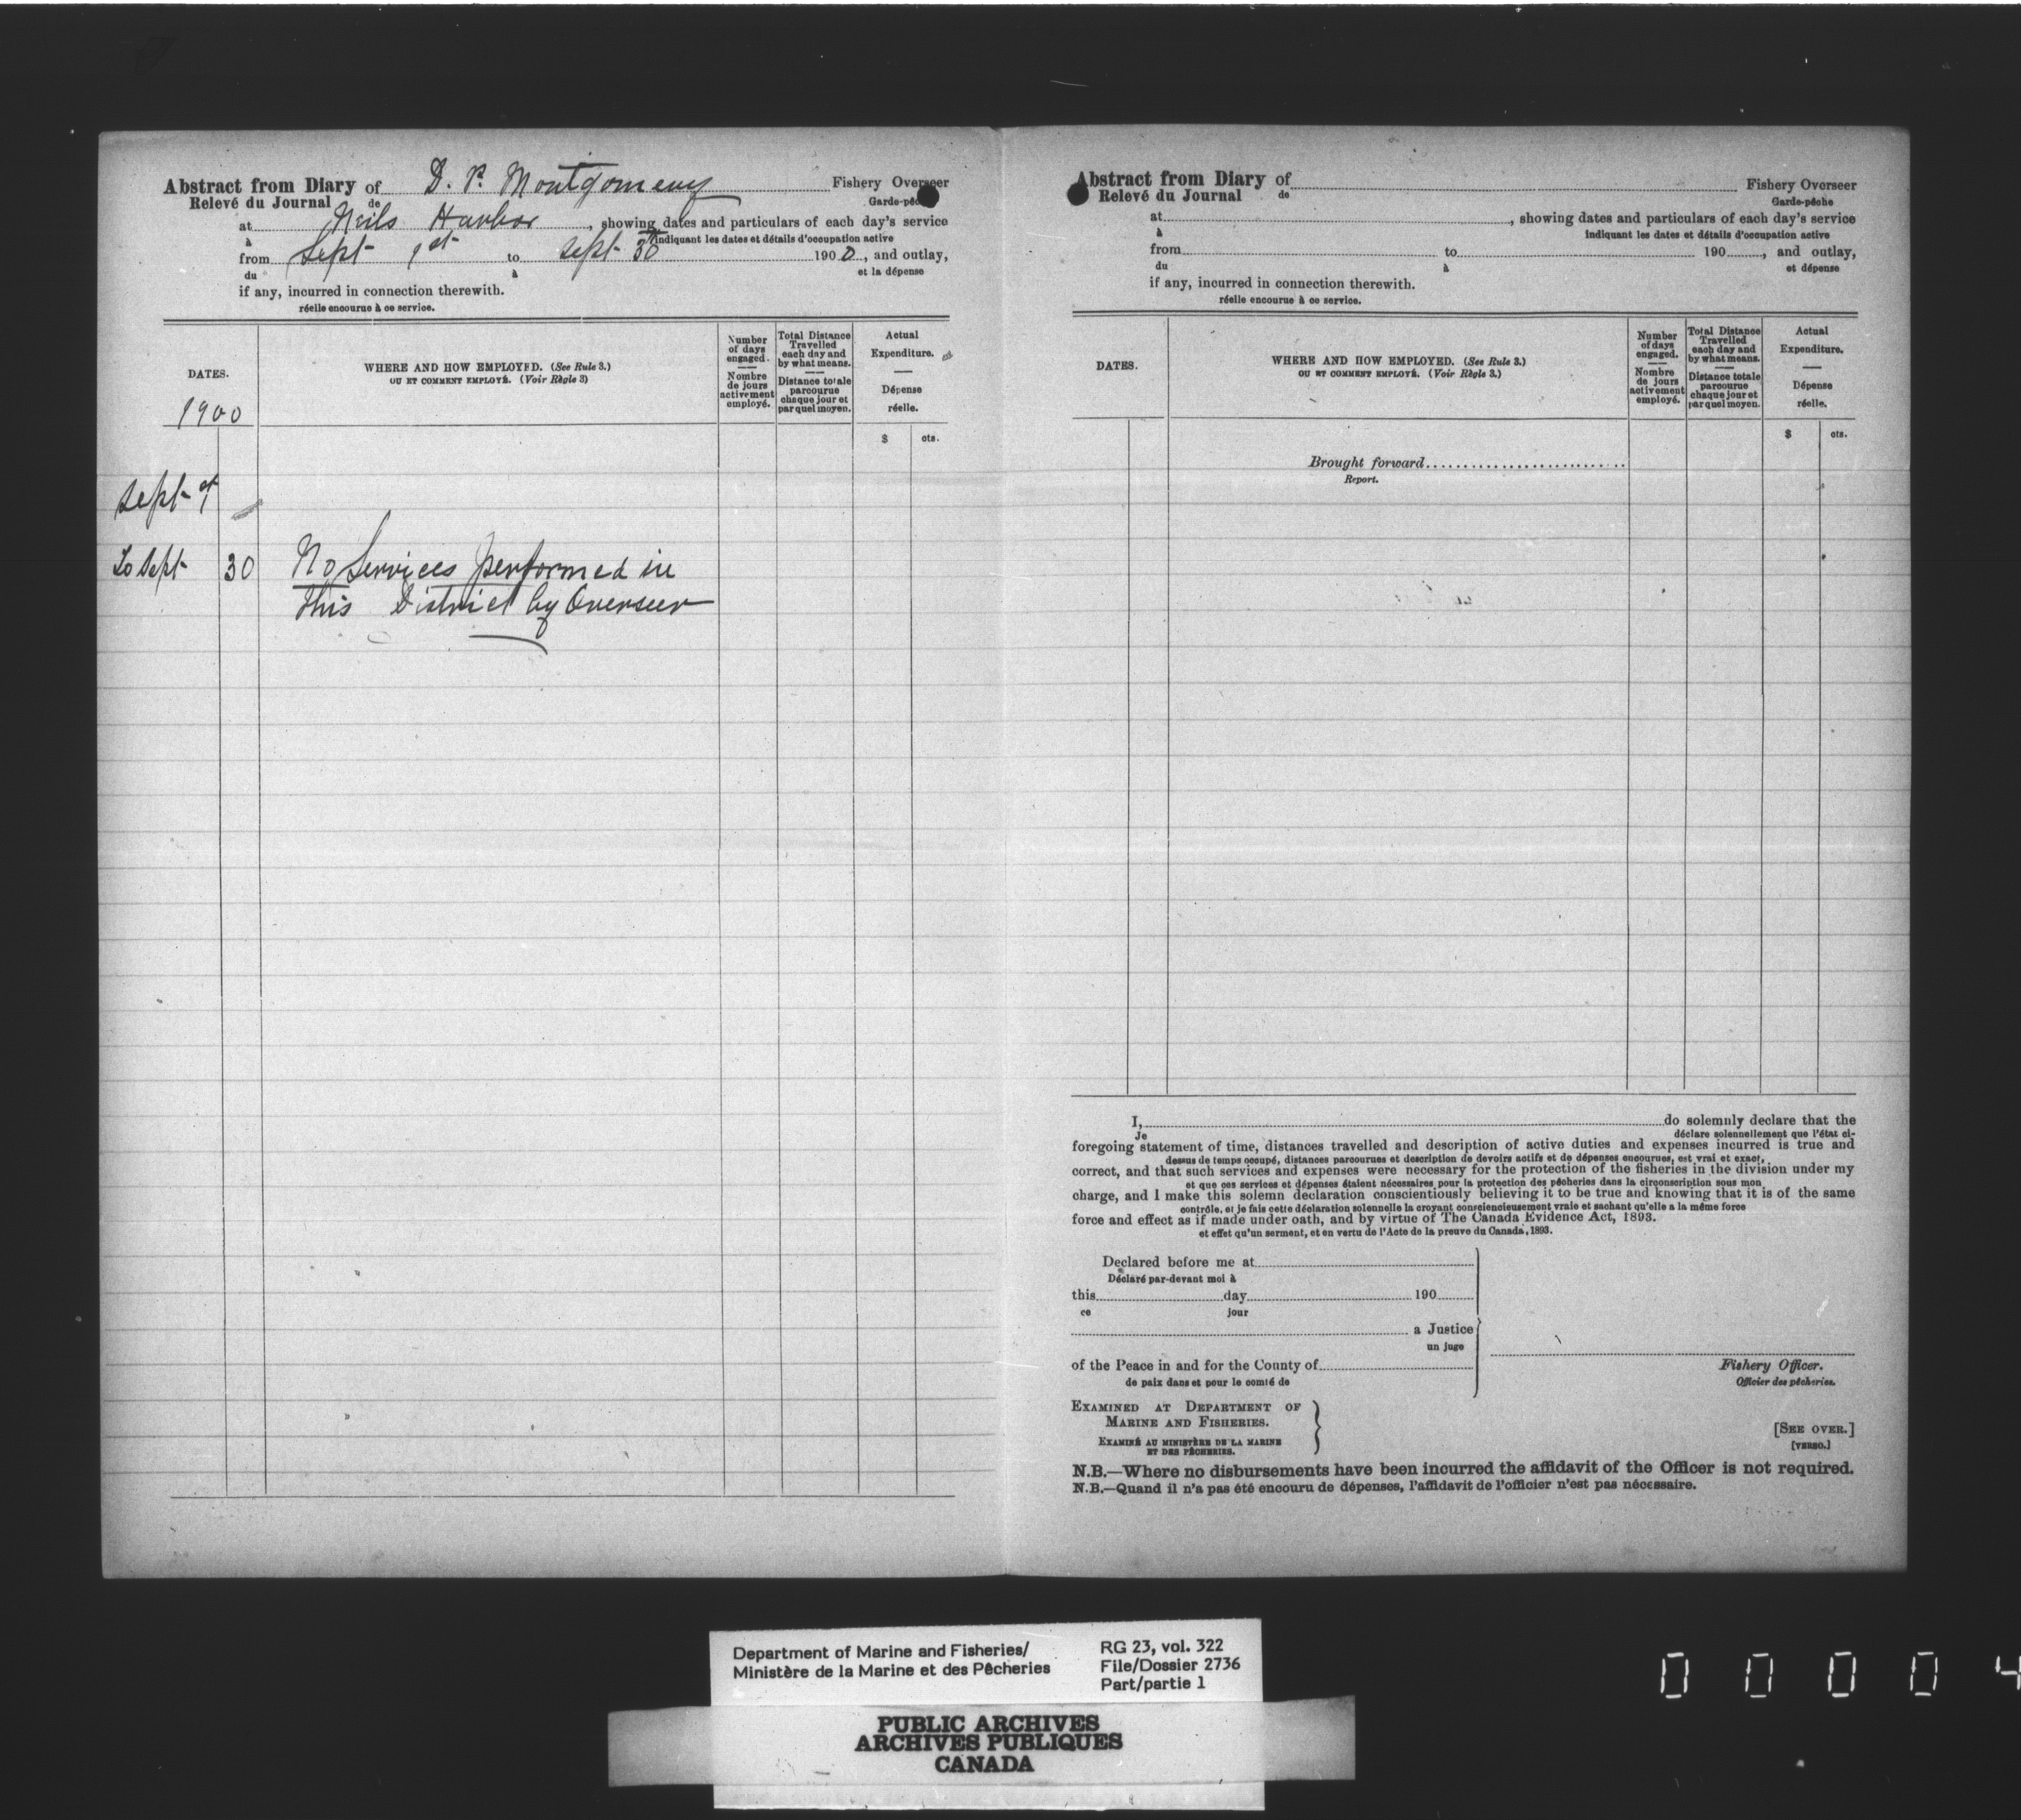 Abstract from Diary of D. P. Montgomery Fishery Overseer
Relevé du Journal de Garde-pêc
at Neils Harbor, showing dates and particulars of each day's service
à indiquant les dates et détails d'occupation active
from Sept 1st to Sept 30th 1900, and outlay,
du à et la dépense
if any, incurred in connection therewith.
réelle encourue à ce service.
DATES.
1900
WHERE AND HOW EMPLOYED. (See Rule 3.)
OU ET COMMENT EMPLOYÉ. (Voir Règle 3)
Number
of days
engaged.
Nombre
de jours
activement
employé.
Total Distance
Travelled
each day and
by what means.
Distance totale
parcourue
chaque jour et
par quel moyen.
Actual
Expenditure.
Dépense
réelle.
$ cts.
Sept 1st
To Sept 30 No Services performed in
this District by Overseer
Abstract from Diary of Fishery Overseer
Relevé du Journal de Garde-pêche
at , showing dates and particulars of each day's service
à indiquant les dates et détails d'occupation active
from to 190 , and outlay,
du à et dépense
if any, incurred in connection therewith.
réelle encourue à ce service.
DATES.
WHERE AND HOW EMPLOYED. (See Rule 3.)
OU ET COMMENT EMPLOYÉ. (Voir Règle 3.)
Number
of days
engaged.
Nombre
de jours
activement
employé.
Total Distance
Travelled
each day and
by what means.
Distance totale
parcourue
chaque jour et
par quel moyen.
Actual
Expenditure.
Dépense
réelle.
$ cts.
Brought forward
Report.
I, do solemnly declare that the
Je déclare solennellement que l'état ci-
foregoing statement of time, distances travelled and description of active duties and expenses incurred is true and
dessus de temps occupé, distances parcourues et description de devoirs actifs et de dépenses encourues, est vrai et exact,
correct, and that such services and expenses were necessary for the protection of the fisheries in the division under my
et que ces services et dépenses étaient nécessaires pour la protection des pêcheries dans la circonscription sous mon
charge, and I make this solemn declaration conscientiously believing it to be true and knowing that it is of the same
contrôle, et je fais cette déclaration solennelle la croyant consciencieusement vraie et sachant qu'elle a la même force
force and effect as if made under oath, and by virtue of The Canada Evidence Act, 1893.
et effet qu'un serment, et en vertu de l'Acte de la preuve du Canada, 1893.
Declared before me at
Déclaré par-devant moi à
this day 190
ce jour
a Justice
un juge
of the Peace in and for the County of
de paix dans et pour le comté de
Fishery Officer.
Officier des pêcheries.
EXAMINED AT DEPARTMENT OF
MARINE AND FISHERIES.
EXAMINÉ AU MINISTÈRE DE LA MARINE
ET DES PÊCHERIES.
[SEE OVER.]
[VERSO.]
N.B.—Where no disbursements have been incurred the affidavit of the Officer is not required.
N.B.—Quand il n'a pas été encouru de dépenses, l'affidavit de l'officier n'est pas nécessaire.
Department of Marine and Fisheries/
Ministère de la Marine et des Pêcheries
RG 23, vol. 322
File/Dossier 2736
Part/partie 1
PUBLIC ARCHIVES
ARCHIVES PUBLIQUES
CANADA
0 0 0 0 4